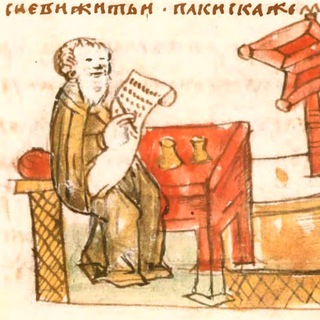 сневижитьи · пакискажем